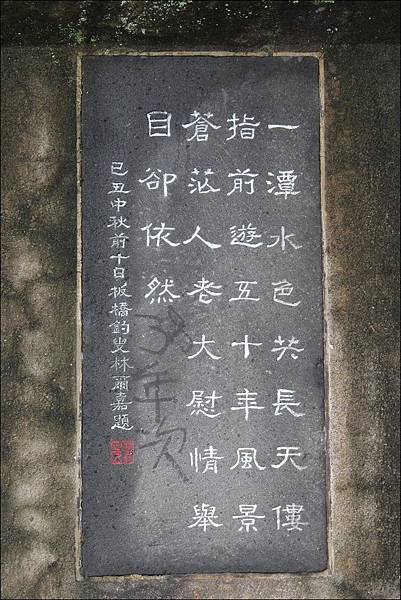 一潭水色共長天僂
指前遊五十年風景
蒼茫人老大慰情舉
目卻依然
己丑中秋前十日板橋釣叟林爾嘉題
年次